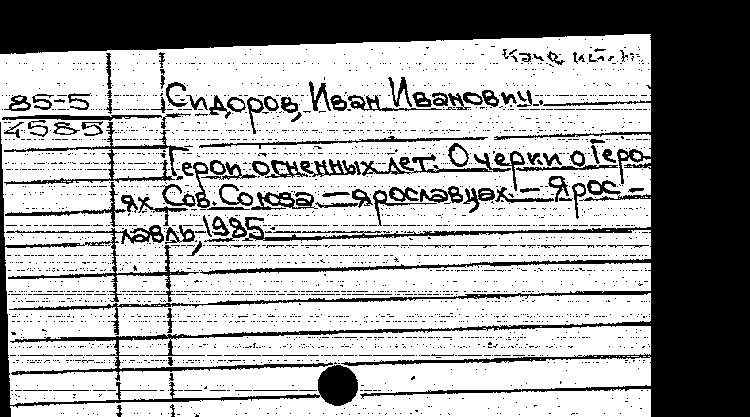 85-5
4585
Сидоров, Иван Иванович.
Герои огненных лет: Очерки о Геро-
ях Сов. Союза — ярославцах. — Ярос-
лавль, 1985.